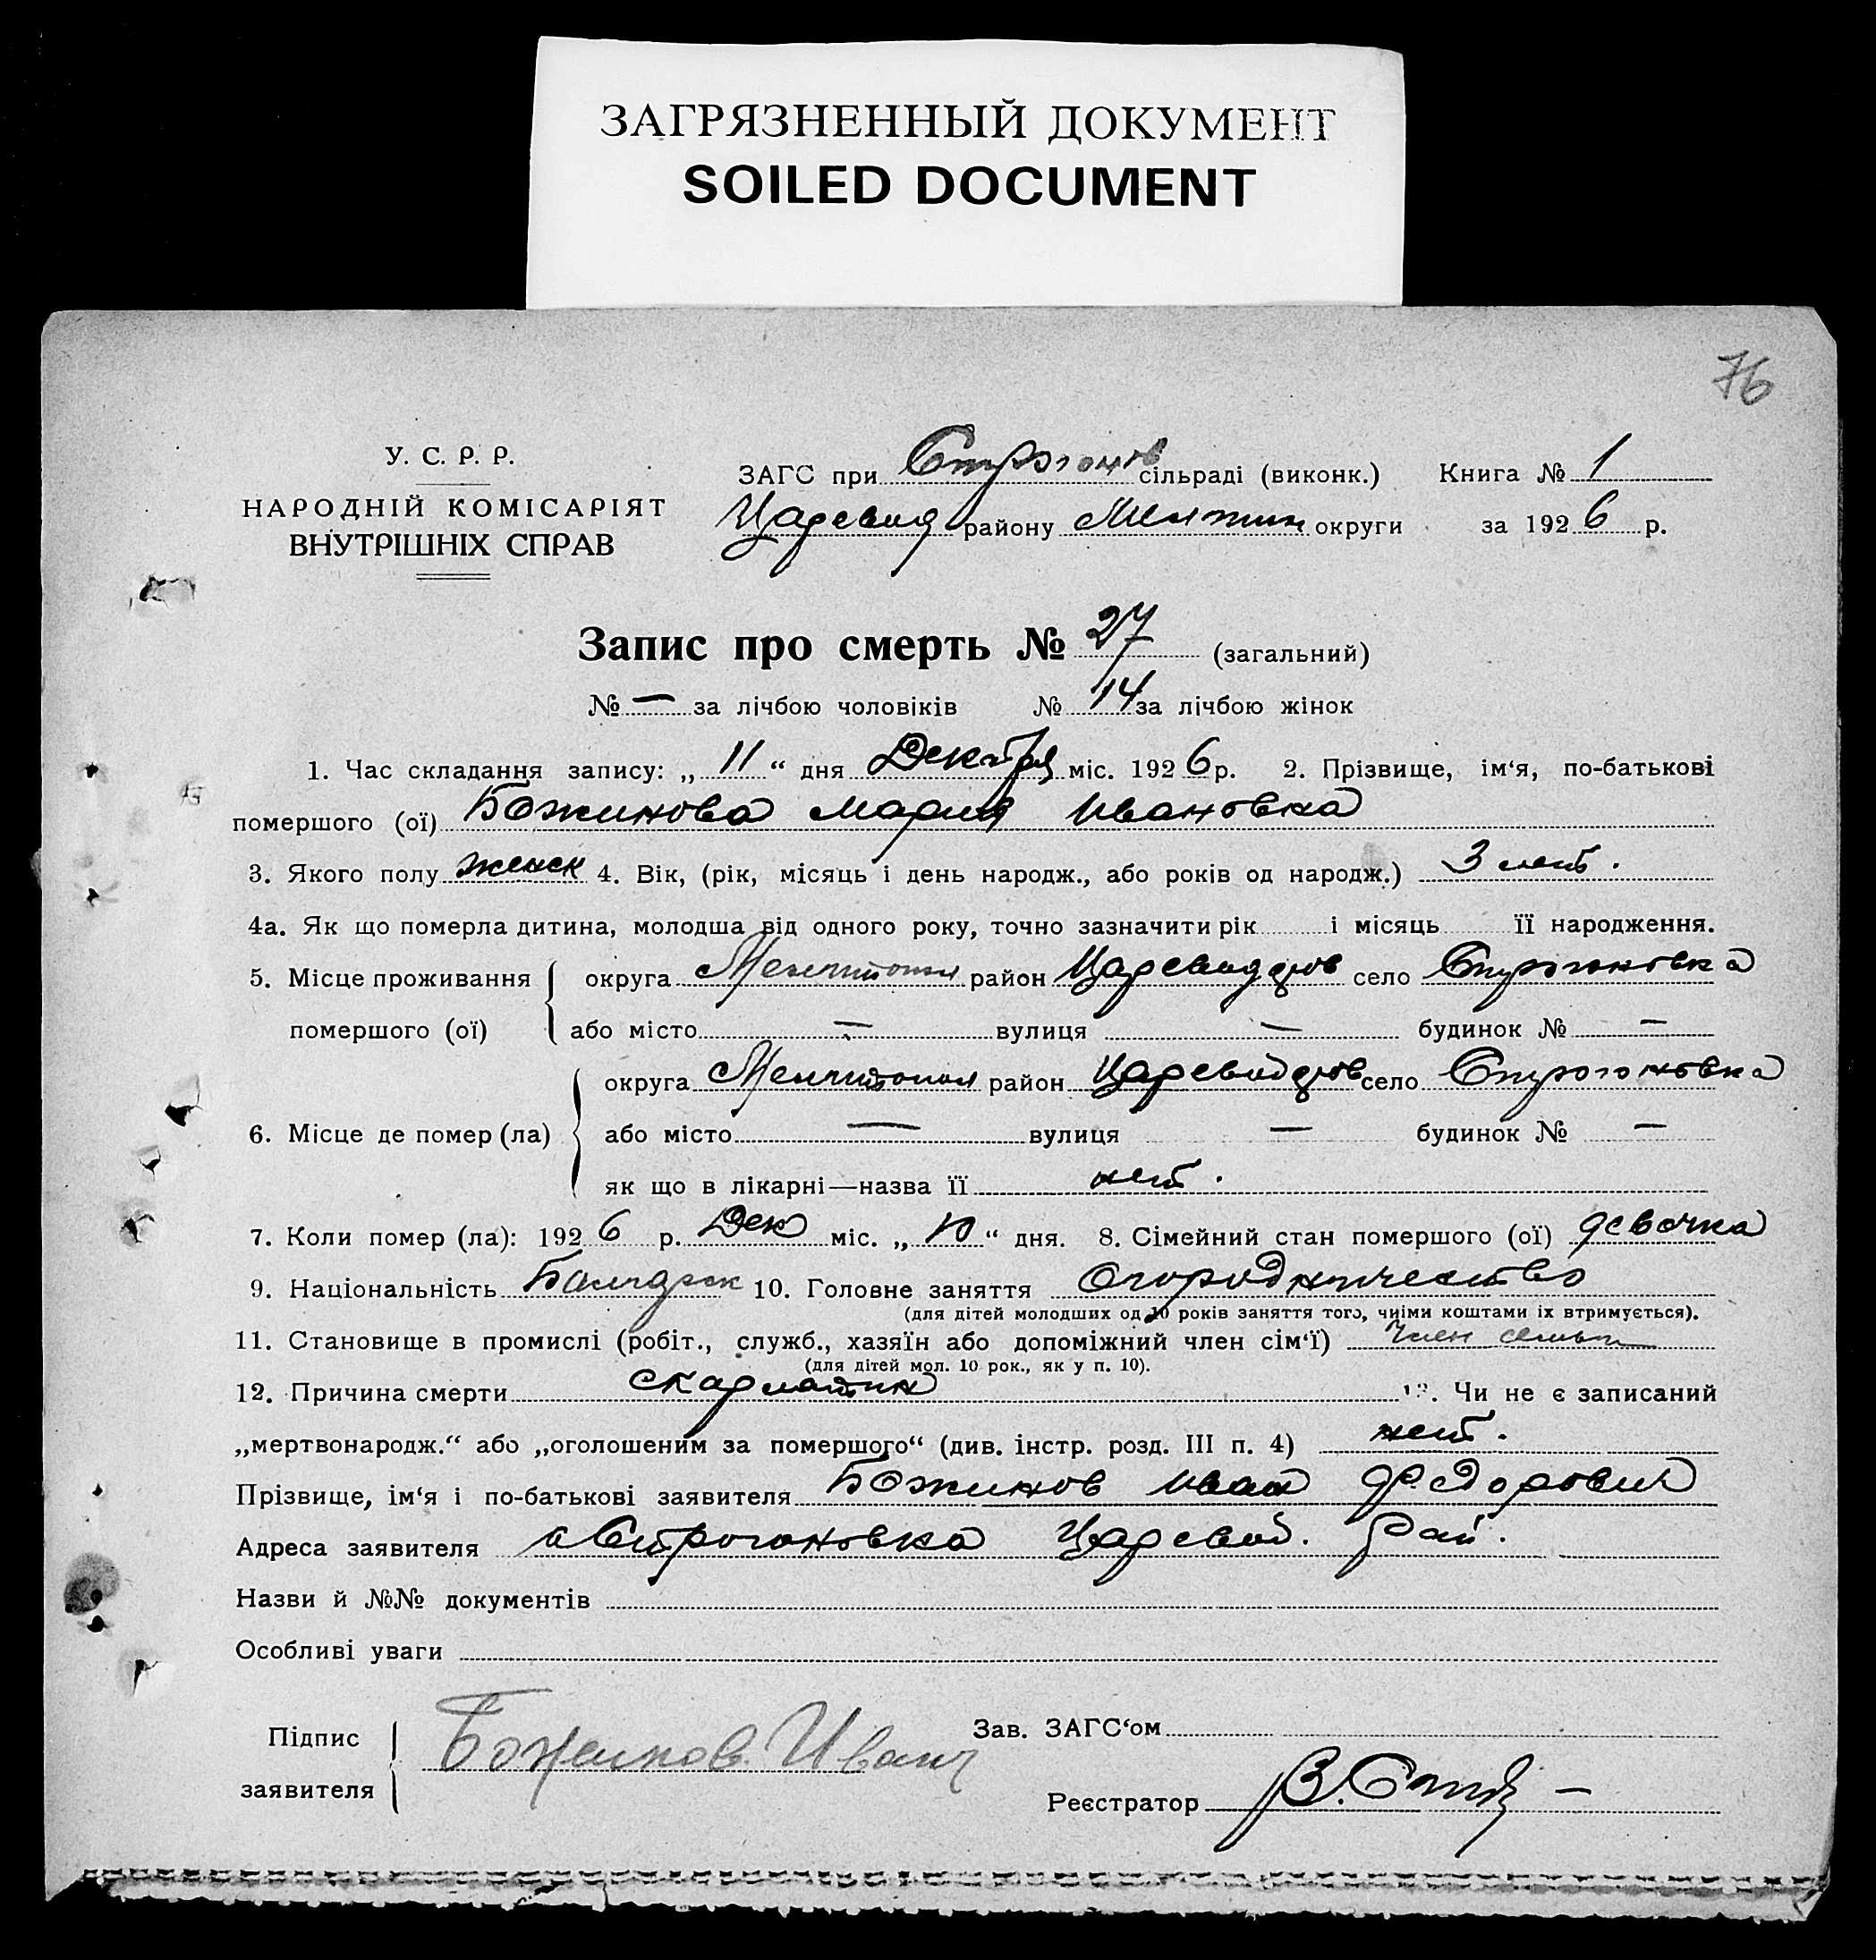 ЗАГРЯЗНЕННЫЙ ДОКУМЕНТ
SOILED DOCUMENT
76
У. С. Р. Р.
НАРОДНІЙ КОМІСАРІЯТ
ВНУТРІШНІХ СПРАВ
ЗАГС при Строгонов сільраді (виконк.) Книга № 1
Царевид району округи за 1926 р.
Запис про смерть № 27 (загальний)
№ — за лічбою чоловіків № 14 за лічбою жінок
1. Час складання запису: „ 11 “ дня Декабря міс. 1926 р. 2. Прізвище, ім‘я, по-батькові
помершого (ої) Божинова Мария Ивановна
3. Якого полу женск 4. Вік, (рік, місяць і день народж., або років од народж.) 3 лет.
4а. Як що померла дитина, молодша від одного року, точно зазначити рік і місяць її народження.
5. Місце проживання округа Мелитопол район Царевидаров село Строгоновка
помершого (ої) або місто — вулиця — будинок № —
округа Мелитопол район село Строгоновка
6. Місце де помер (ла) або місто — вулиця — будинок № —
як що в лікарні—назва її нет.
7. Коли помер (ла): 1926 р. Дек міс. „ 10 “ дня. 8. Сімейний стан помершого (ої) девочка
9. Національність 10. Головне заняття Огородничество
(для дітей молодших од 10 років заняття того, чиїми коштами їх втримується).
11. Становище в промислі (робіт., служб., хазяїн або допоміжний член сім‘ї) Член семьи
(для дітей мол. 10 рок., як у п. 10).
12. Причина смерти скарлатин 13. Чи не є записаний
„мертвонародж.“ або „оголошеним за помершого“ (див. інстр. розд. III п. 4) нет.
Прізвище, ім‘я і по-батькові заявителя Божинов Иван Федорович
Адреса заявителя с Строгоновка Царевод. Рай.
Назви й №№ документів
Особливі уваги
Підпис
заявителя
Божинов Иван
Зав. ЗАГС‘ом
Реєстратор